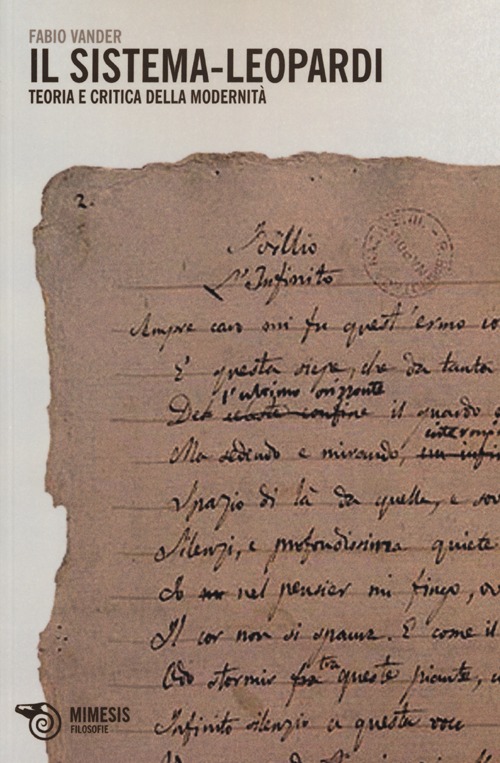 FABIO VANDER
IL SISTEMA-LEOPARDI
TEORIA E CRITICA DELLA MODERNITÀ
2.
Idillio
L'Infinito
Sempre caro mi fu quest'ermo co
E questa siepe, che da tanta
l'ultimo orizzonte
Del celeste confine il guardo
Ma sedendo e mirando,
Spazio di là da quella, e sov
Silenzi, e profondissima quiete
Io nel pensier mi fingo, ov
Il cor non si spaura. E come il
tra
Odo stormir fra queste piante,
Infinito silenzio a questa voce
MIMESIS
FILOSOFIE